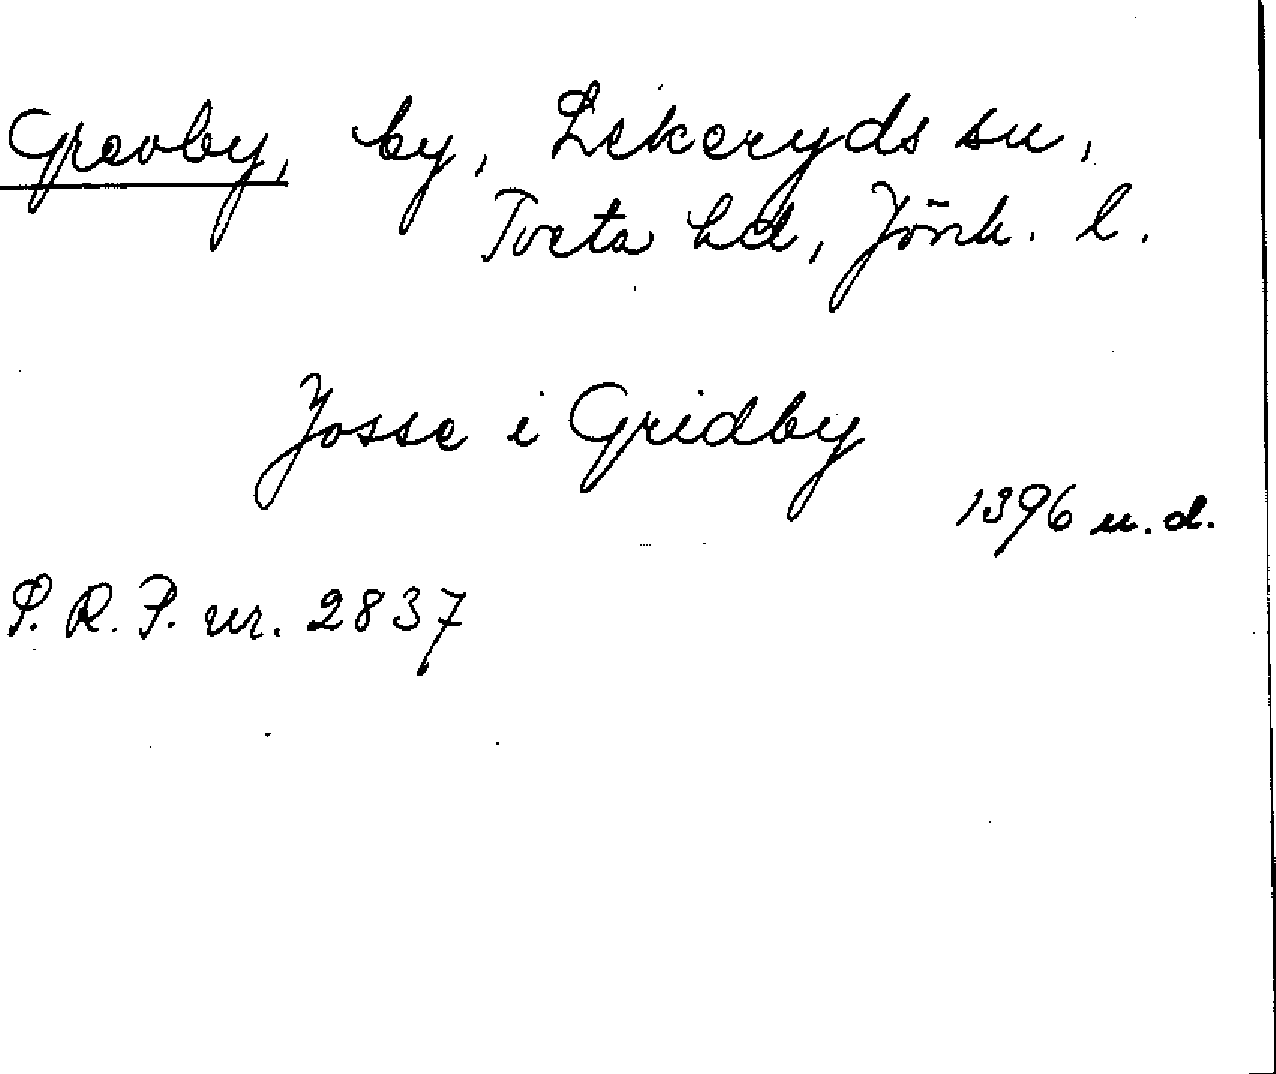 Grevby, by, Lekeryds sn,
Tveta hd, Jönk. l.
Josse i Gridby
1396 u. d.
P. R. P. nr. 2837